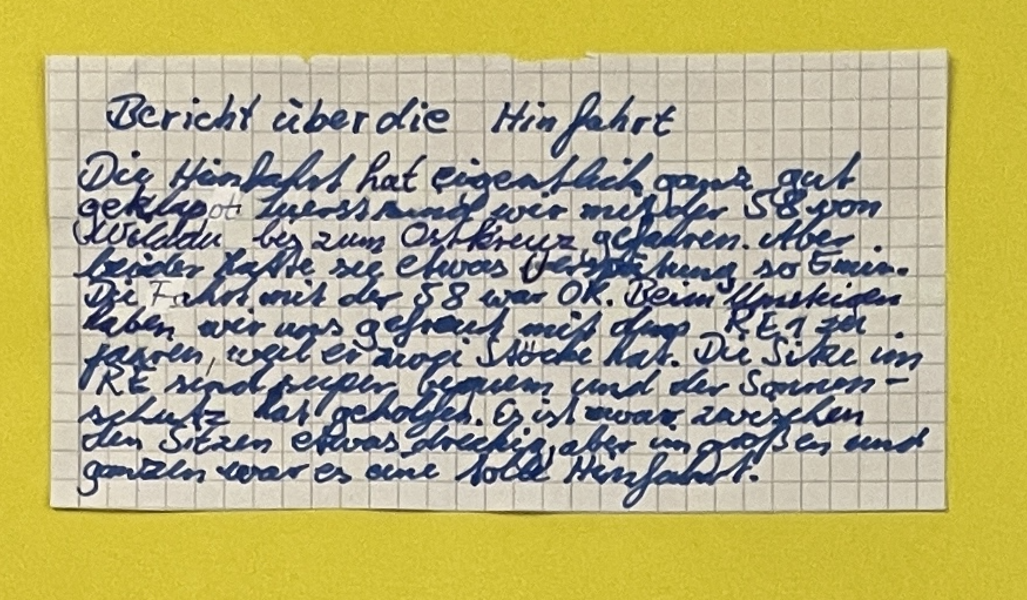 Bericht über die Hinfahrt
Die Hinfahrt hat eigentlich ganz gut
geklappt. Zuerst sind wir mit der S8 von
bis zum Ostkreuz gefahren. Aber
leider hatte sie etwas Verspätung so 5min.
Die Fahrt mit der S8 war OK. Beim Umsteigen
haben wir uns gefreut mit dem RE1 zu
fahren, weil er zwei Stöcke hat. Die Sitze im
RE sind super bequem und der Sonnen-
schutz hat geholfen. Es ist zwar zwischen
den Sitzen etwas dreckig, aber im großen und
ganzen war es eine tolle Hinfahrt.